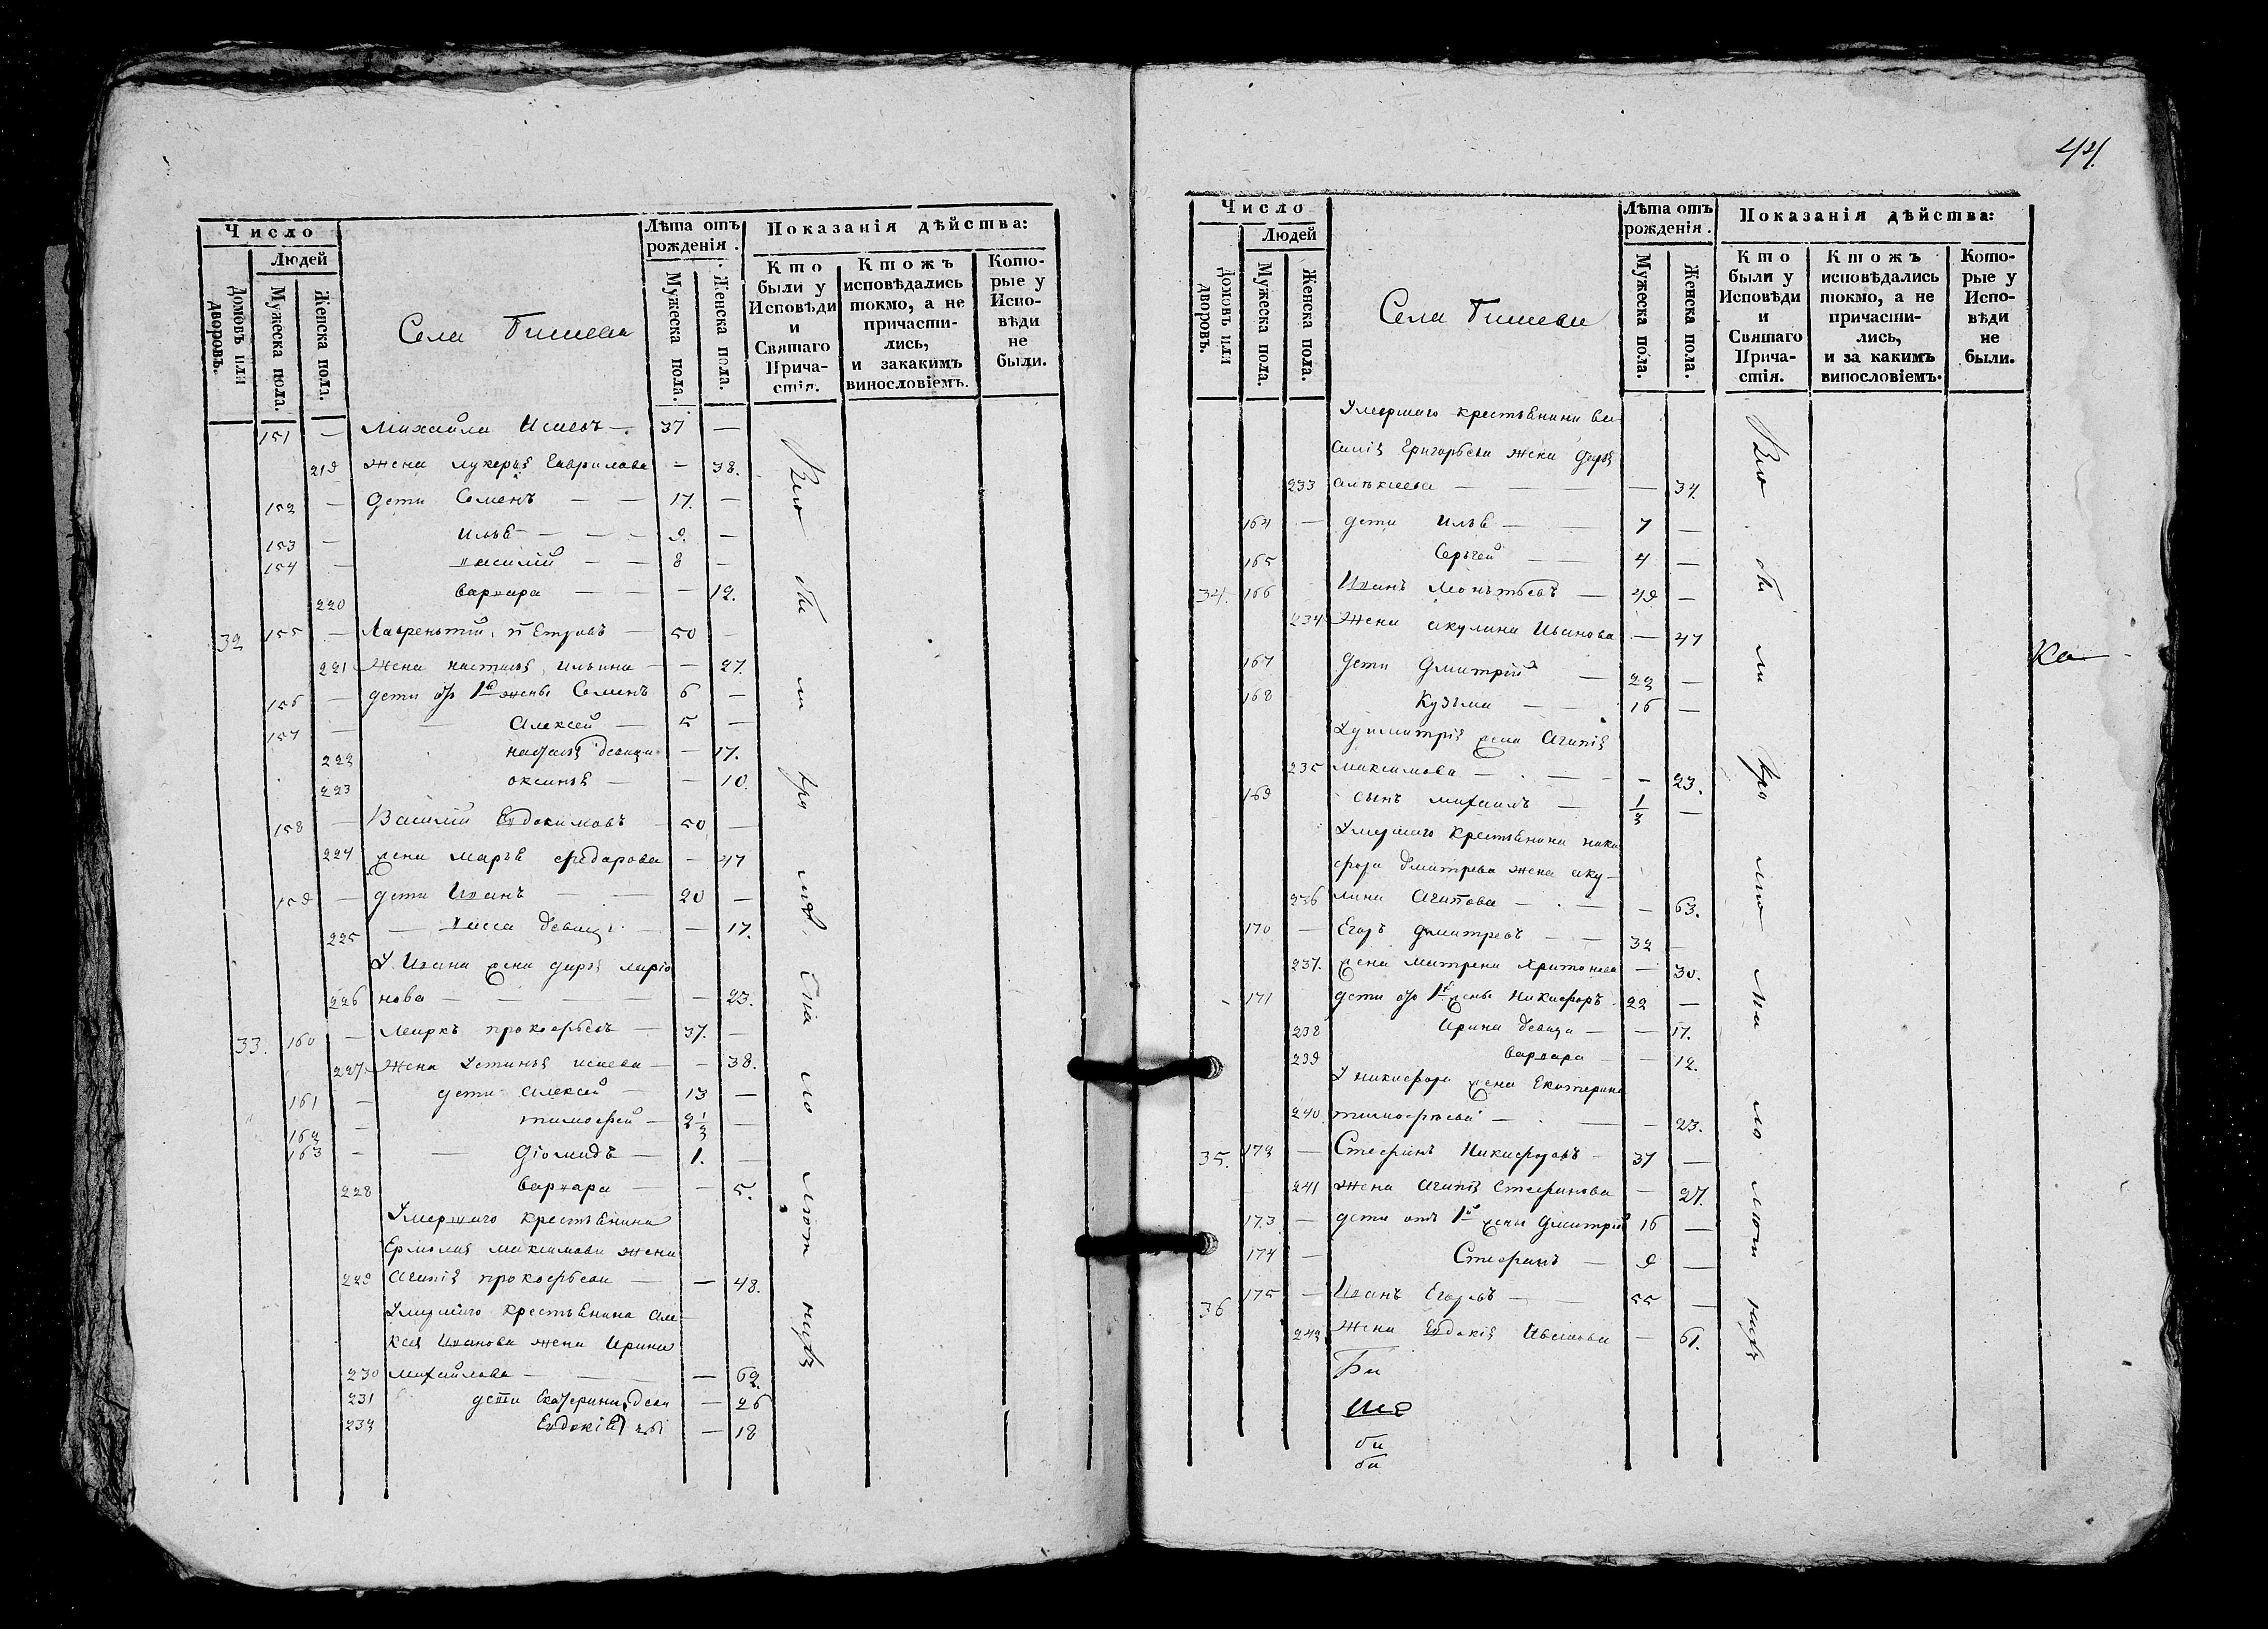 Число
Людей
Домовъ или дворовъ.
Мужеска пола.
Женска пола.
Села
Лѣта отъ рожденія.
Мужеска пола.
Женска пола.
Показанія дѣйства:
Кто были у Исповѣди и Святаго Прича-стія.
Ктожъ исповѣдались токмо, а не причасти-лись, и закакимъ винословіемъ.
Кото-рые у Испо-вѣди не были.
151 — Михайла Исаевъ — 37 —
219 жена лукерья Гаврилова — 38.
152 — дети Семенъ — — 17. —
153 — Илья — — — 9. —
154 — василій — — 8 —
220 варвара — — — 12.
32 155 — Лаврентий петровъ — 50 —
221 жена настасья ильина — — 27.
156 — дети отъ 1й жены Семенъ 6 —
157 — — Алексей — 5 —
222 наталья девица — 17.
223 оксинья — — 10.
158 — Василий Евдокимовъ 50 —
224 жена марья федарова — 47
159 — дети Иванъ — — 20 —
225 — девица — — 17.
У Ивана жена дарья ларіо
226 нова — — — — — 23.
33. 160 — Маркъ прокофьевъ — 37. —
227. жена Устинья исаева — — 38.
161 — дети алексей — 13 —
162 — тимофей — 2 1/2 —
163 — — діомидъ — 1. —
228 варвара — — 5.
Умершаго крестьянина
Ермолая максимова жена
229 агапія прокофьева — — 48.
Умершаго крестьянина але
ксея Иванова жена Ирина
230 михайлова — — — — 62.
231 дети Екатерина — 26
232 Евдокія — 18
44.
Число
Людей
Домовъ или дворовъ.
Мужеска пола.
Женска пола.
Села
Лѣта отъ рожденія.
Мужеска пола.
Женска пола.
Показанія дѣйства:
Кто были у Исповѣди и Святаго Прича-стія.
Ктожъ исповѣдались токмо, а не причасти-лись, и за какимъ винословіемъ.
Кото-рые у Испо-вѣди не были.
Умершаго крестьянина ва
силія Григорьева жена дарья
233 алексеева — — — — 34.
164 — дети илья — — 7 —
165 Сергей — — 4 —
34. 166 Иванъ Леонтьевъ — 49 —
234 жена акулина Иванова — 47
167 дети дмитрій — 22 —
168 Кузьма — — 16 —
У димитрія жена Агапія
235 максимова — — — — 23.
169 сынъ михаилъ — 1/2 —
Умершаго Крестьянина ники
фора дмитрева жена аку-
236 лина Агапова — — — 63.
170 — Егоръ дмитревъ — — 32 —
237. жена матрена харитонова — 30.
171 дети отъ 1й жены Никифоръ 22 —
238 Ирина девица — — 17.
239 варвара — — 12.
У никифора жена Екатерина
240 тимофеева — — — 23.
35. 172 — Стефанъ Никифоровъ 37 —
241 жена агапія стефанова — 27.
173 — дети отъ 1й жены дмитрій 16 —
174 — Стефанъ — 9 —
36 175 — Иванъ Егоровъ — — 55 —
242 жена Евдокія — 61.
Би
би
би
Ка